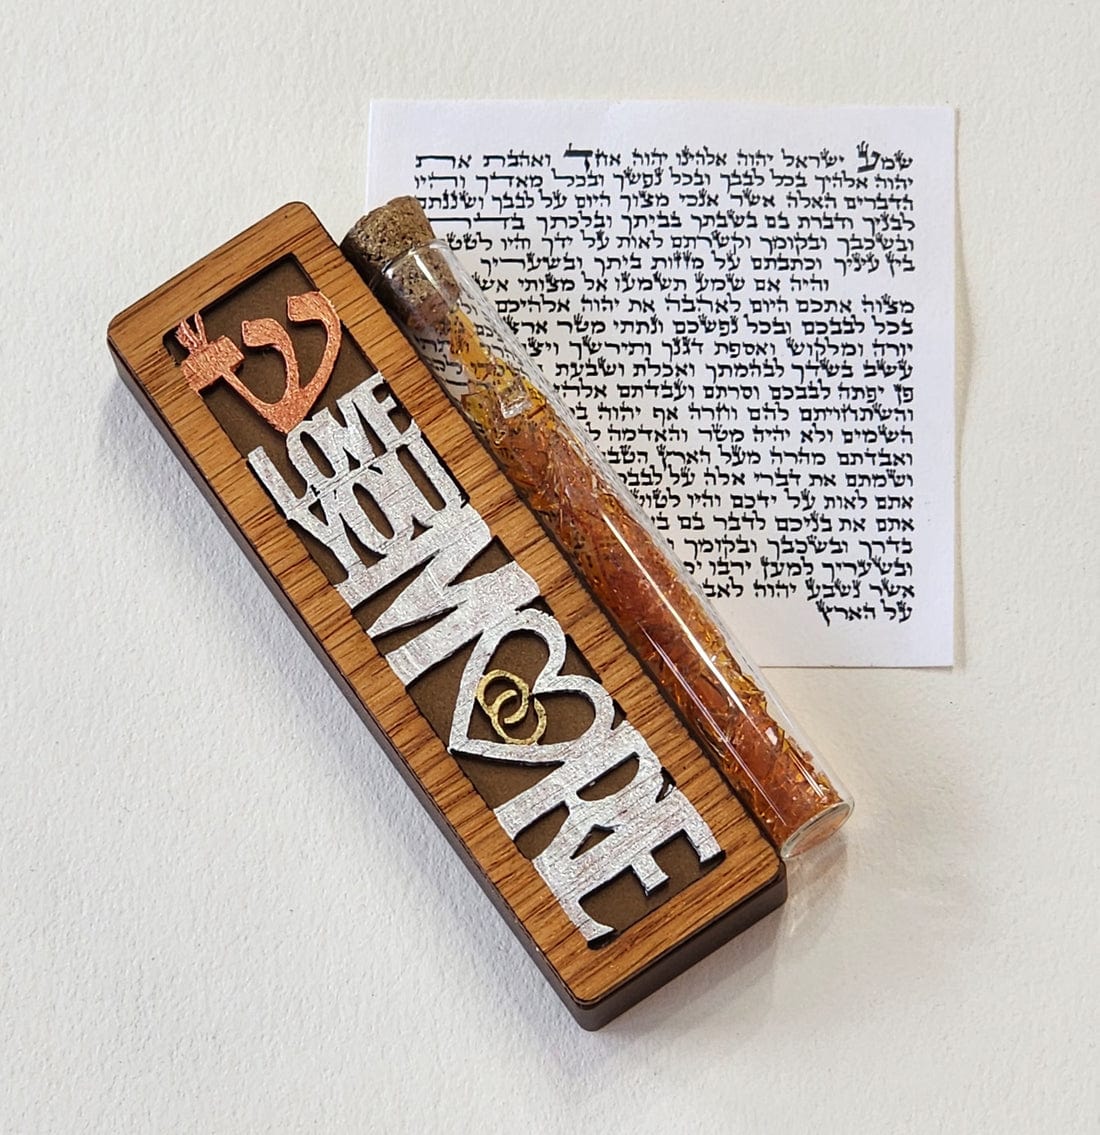 ש
LOVE
YOU
MORE
שמע ישראל יהוה אלהינו יהוה אחד ואהבת את
יהוה אלהיך בכל לבבך ובכל נפשך ובכל מאדך והיו
הדברים האלה אשר אנכי מצוך היום על לבבך ושננתם
לבניך ודברת בם בשבתך בביתך ובלכתך בדרך
ובשכבך ובקומך וקשרתם לאות על ידך והיו
בין עיניך וכתבתם על מזזות ביתך ובשעריך
והיה אם שמע תשמעו אל מצותי
מצוה אתכם היום לאהבה את יהוה אלהיכם
בכל לבבכם ובכל נפשכם ונתתי מטר
יורה ומלקוש ואספת דגנך ותירשך
עשב בשדך לבהמתך ואכלת ושבעת
פן יפתה לבבכם וסרתם ועבדתם
והשתחויתם להם וחרה אף יהוה
השמים ולא יהיה מטר והאדמה
ואבדתם מהרה מעל הארץ
ושמתם את דברי אלה על
אתם לאות על ידכם והיו
אתם את בניכם לדבר בם
בדרך ובשכבך ובקומך
ובשעריך למען ירבו
אשר נשבע יהוה
על הארץ